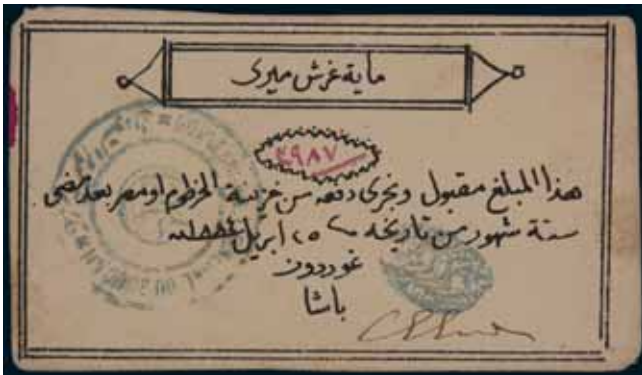 ماية غرش ميرى
٢٩٨٧
هذا المبلغ مقبول ونجرى دفعه من خزينة الخرطوم او مصر بعد مضى
ستة شهور من تاريخه ٢٥ ابريل ١٨٨٤
غوردون
باشا